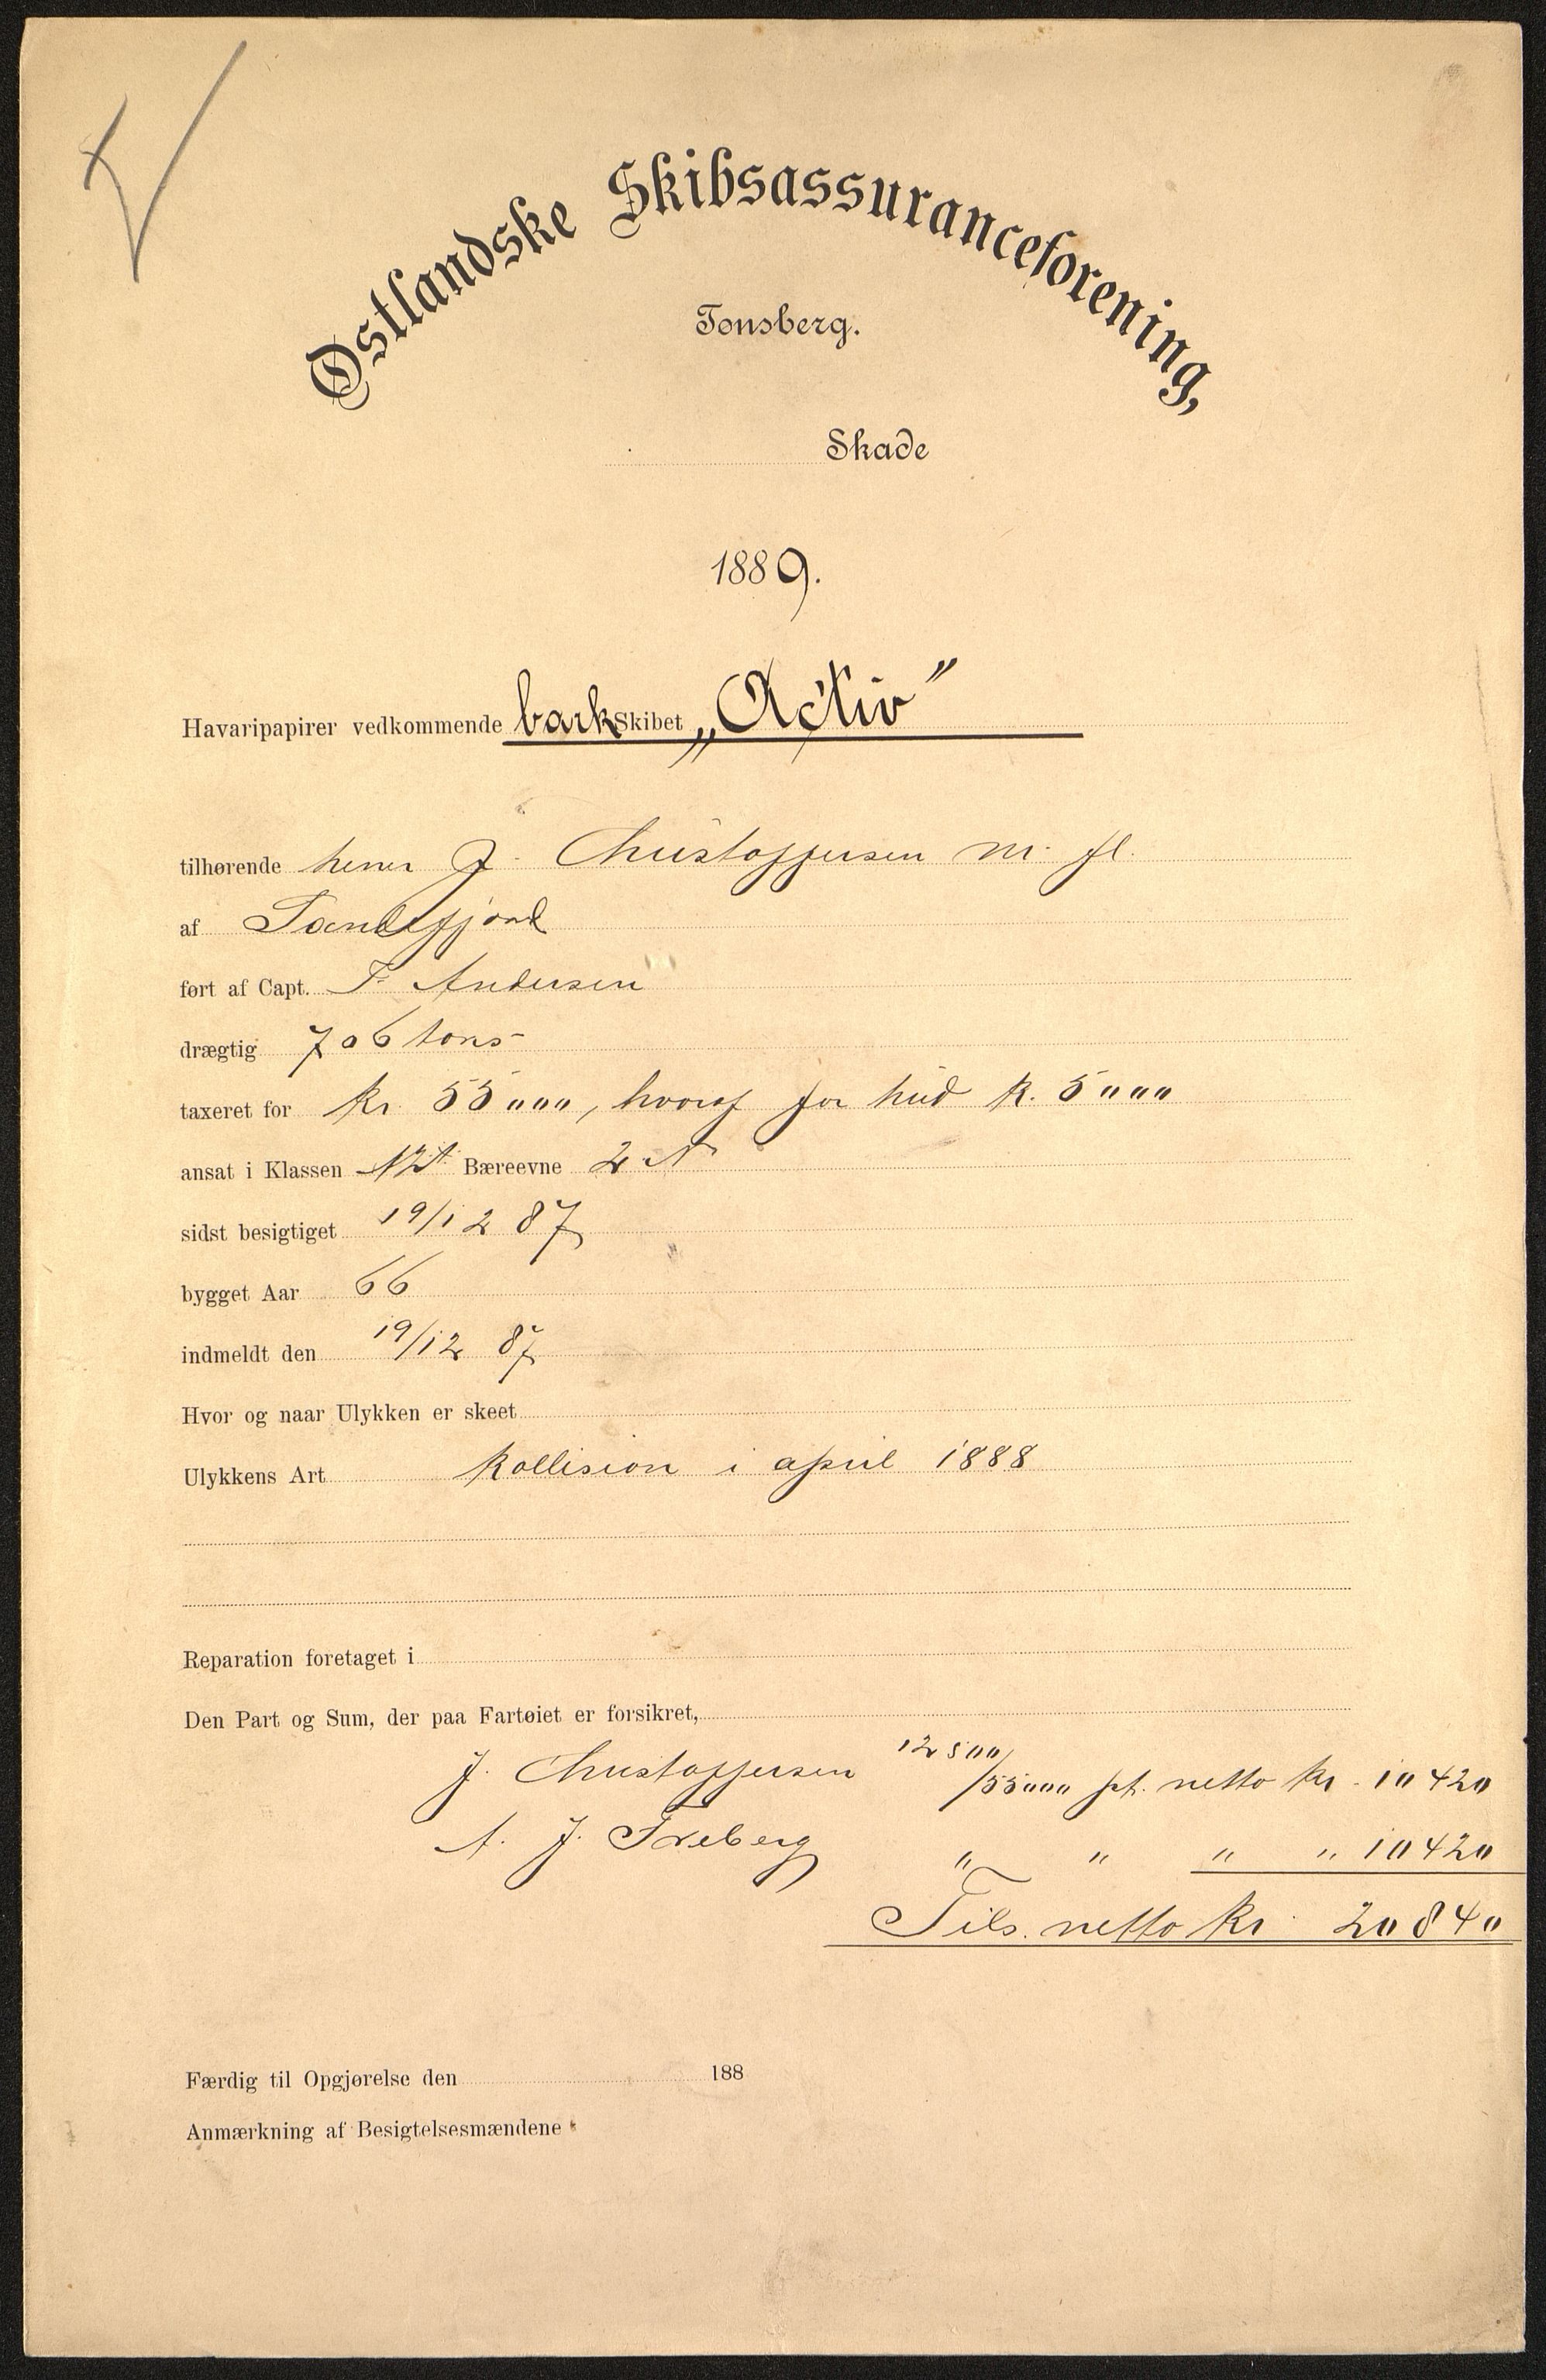 Østlandske Skibsassuranceforening,
Tønsberg.
Skade
1889.
Havaripapirer vedkommende bark Skibet „Activ"
tilhørende herrer J. Christoffersen m. fl.
af Sandefjord
ført af Capt. F. Andersen
drægtig 706 tons
taxeret for Kr. 55000, hvoraf for hud K. 5000
ansat i Klassen Bæreevne
sidst besigtiget 19/12 87
bygget Aar 66
indmeldt den 19/12 87
Hvor og naar Ulykken er skeet
Ulykkens Art Kollision i april 1888
Reparation foretaget i
Den Part og Sum, der paa Fartøiet er forsikret,
J. Christoffersen 12500/55000 pt. netto Kr. 10420
A. J. Freberg " " " " 10420
Tils. netto Kr. 20840
Færdig til Opgjørelse den 188
Anmærkning af Besigtelsesmændene